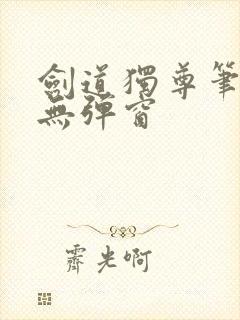 劍道獨尊筆
無彈窗
霽光啊